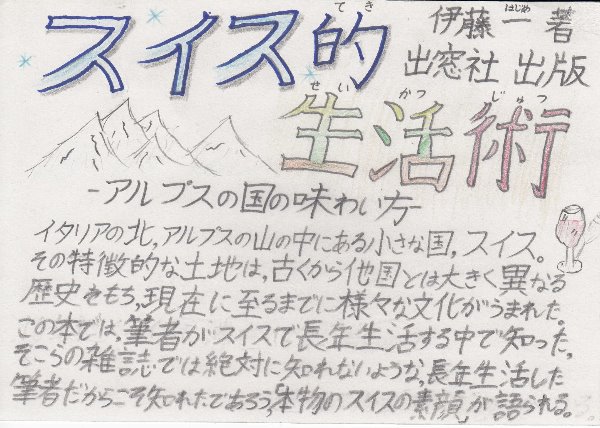 スイス的
てき
伊藤 一 著
はじめ
出窓社 出版
生活術
せいかつじゅつ
-アルプスの国の味わい方-
イタリアの北,アルプスの山の中にある小さな国,スイス。
その特徴的な土地は,古くから他国とは大きく異なる
歴史をもち,現在に至るまでに様々な文化がうまれた。
この本では,筆者がスイスで長年生活する中で知った,
そこらの雑誌では絶対に知れないような,長年生活した
筆者だからこそ知れたであろう,「本物のスイスの素顔」が語られる。